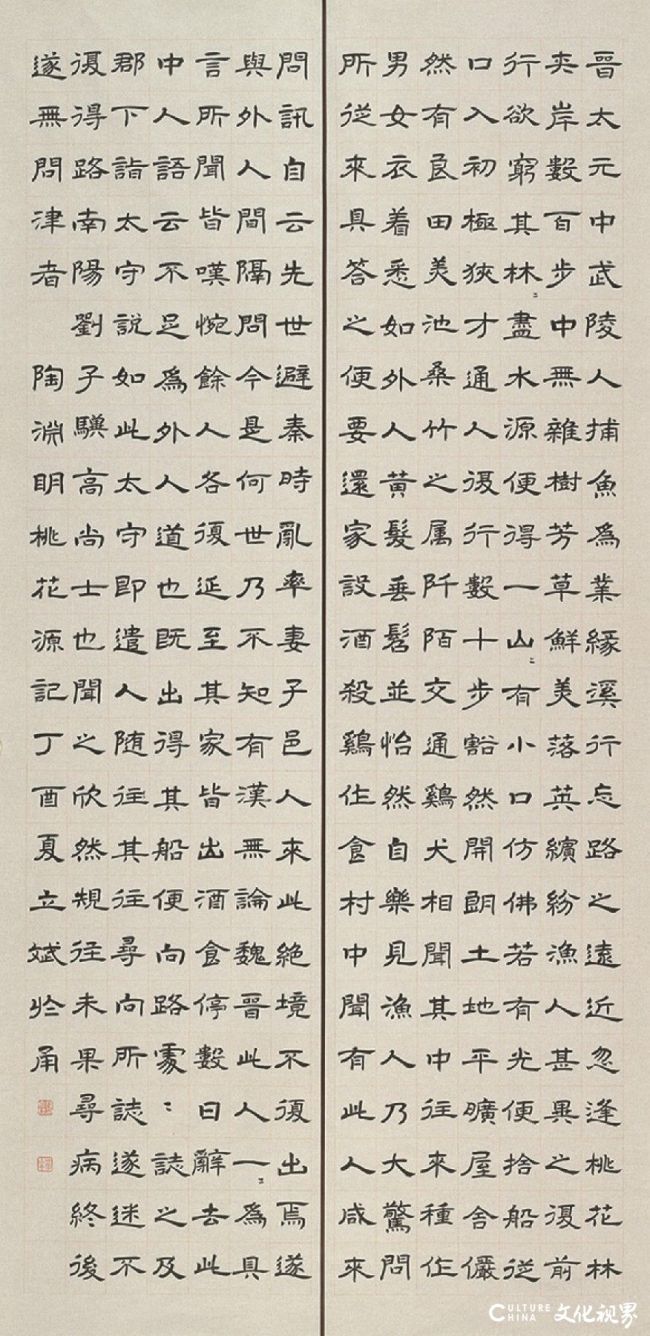 晉太元中武陵人捕魚爲業緣溪行忘路之遠近忽逢桃花林
夾岸數百步中無雜樹芳草鮮美落英繽紛漁人甚異之復前
行欲窮其林〻盡水源便得一山〻有小口仿佛若有光便捨船從
口入初極狹才通人復行數十步豁然開朗土地平曠屋舍儼
然有良田美池桑竹之属阡陌交通鷄犬相聞其中往來種作
男女衣着悉如外人黄髮垂髫並怡然自樂見漁人乃大驚問
所從來具答之便要還家設酒殺鷄作食村中聞有此人咸來
問訊自云先世避秦時亂率妻子邑人來此絕境不復出焉遂
與外人間隔問今是何世乃不知有漢無論魏晉此人一〻爲具
言所聞皆嘆惋餘人各復延至其家皆出酒食停數日辭去此
中人語云不足爲外人道也既出得其船便向路處〻誌之及
郡下詣太守説如此太守即遣人随往其往尋向所誌遂迷不
復得路南陽劉子驥高尚士也聞之欣然規往未果尋病終後
遂無問津者 陶淵明桃花源記丁酉夏立斌於甬
CULTURE CHINA 文化视界